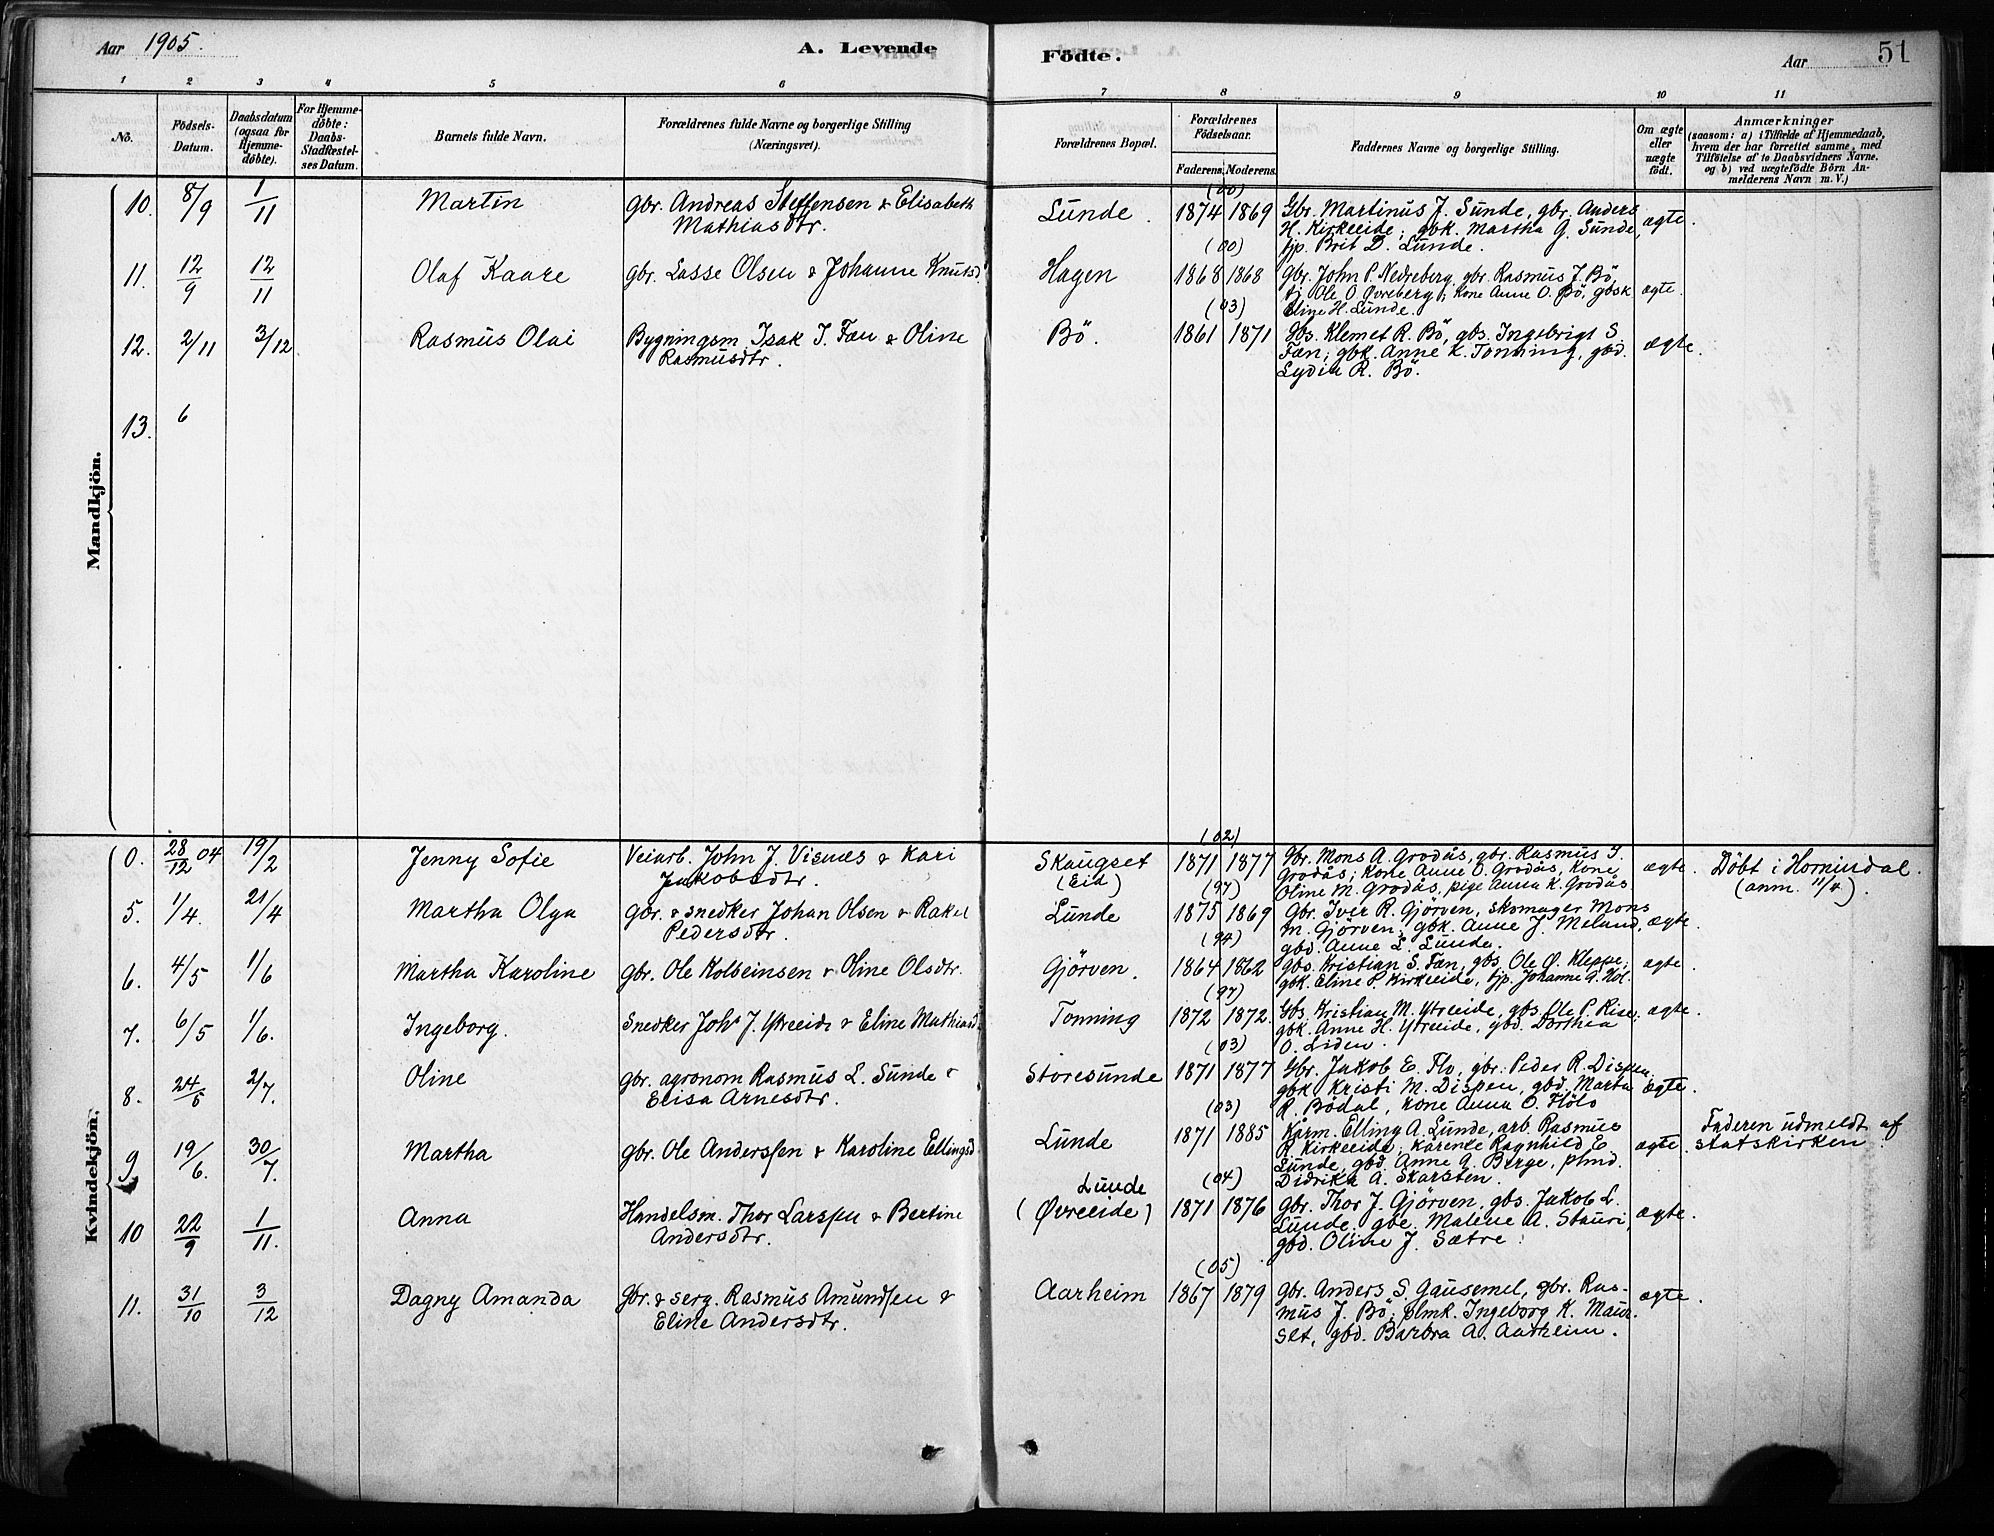 Aar 1905.
A. Levende Födte.
Aar 51
1 2 3 4 5 6 7 8 9 10 11
No.
Födsels-Datum.
Daabsdatum (ogsaa for Hjemme-döbte).
For Hjemme-döbte: Daabs-Stadfæstel-ses Datum.
Barnets fulde Navn.
Forældrenes fulde Navne og borgerlige Stilling (Næringsvei).
Forældrenes Bopæl.
Forældrenes Födselsaar.
Faderens. Moderens.
Faddernes Navne og borgerlige Stilling.
Om ægte eller uægte födt.
Anmærkninger
(saasom: a) i Tilfælde af Hjemmedaab,
hvem der har forrettet samme, med
Tilföielse af to Daabsvidners Navne,
og b) ved uægtefödte Börn An-
melderens Navn m. V.)
Mandkjön.
10. 8/9 1/11 Martin gbr. Andreas Steffensen & Elisabeth Mathiasdtr. Lunde. (00) 1874 1869 Gbr. Martinus J. Sunde, gbr. Anders
H. Kirkeeide; gbk. Martha G. Sunde,
tjp. Brit D. Lunde. ægte.
11. 12/9 12/11 Olaf Kaare gbr. Lasse Olsen & Johanne Knutsd. Hagen (00) 1868 1868 Gbr. John P. Nedreberg, gbr. Rasmus J. Bö,
tj. Ole O. Øvreberg; kone Anne O. Bö, gbsk
Eline H. Lunde. ægte.
12. 2/11 3/12 Rasmus Olai Bygningsm. Isak I. Fæn & Oline Rasmusdtr. Bö. (03) 1861 1871 Gbs. Klemet R. Bö, gbs. Ingebrigt S.
Fæn; gbk. Anne K. Tonning, gbd.
Lydia R. Bö. ægte.
13. 6
Kvindekjön.
0. 28/12 04 19/2 Jenny Sofie Veiarb. John J. Visnæs & Kari Jakobsdtr. Skaugset (Eid) (02) 1871 1877 Gbr. Mons A. Grodås, gbr. Rasmus I.
Grodås; kone Anne O. Grodås, kone
Oline M. Grodås, pige Anna K. Grodås ægte. Döbt i Hornindal. (anm. 11/4).
5. 1/4. 21/4 Martha Olga gbr. & snedker Johan Olsen & Rakel Pedersdtr. Lunde (97) 1875 1869 Gbr. Iver R. Gjörven, skomager Mons
M. Gjörven; gbk. Anne J. Meland,
gbd. Anne L. Lunde. ægte.
6. 4/5 1/6 Martha Karoline gbr. Ole Kolbeinsen & Oline Olsdtr. Gjörven. (94) 1864 1862 gbs. Kristian S. Fæn, gbs Ole Ø. Kleppe;
gbk. Eline P. Kirkeeide, tjp. Johanne A. Hol. ægte.
7. 6/5 1/6. Ingeborg. Snedker Johs J. Ytreeide & Eline Mathiasd. Tonning (97) 1872 1872. Gbs. Kristian M. Ytreeide, gbs. Ole P. Rise;
gbk. Anne H. Ytreeide, gbd. Dorthea
O. Liden. ægte.
8. 24/5 2/7. Oline gbr. agronom Rasmus L. Sunde & Elisa Arnesdtr. Storesunde (03) 1871 1877 Gbr. Jakob E. Flo, gbr. Peder R. Dispen.
gbk Kristi M. Dispen, gbd. Marta
R. Bödal, kone Anna O. Flölo ægte.
9 19/6. 30/7. Martha gbr. Ole Anderssen & Karoline Ellingsd. Lunde (03) 1871 1885 Kårm. Elling A. Lunde, arb. Rasmus
R. Kirkeeide; kårenke Ragnhild E.
Lunde, gbd. Anne A. Berge, plmd.
Didrika A. Skarsten. ægte. Faderen udmeldt af statskirken.
10 22/9 1/11. Anna Handelsm. Thor Larssen & Bertine Andersdtr. Lunde (Øvreeide) (04) 1871 1876 gbr. Thor J. Gjörven, gbs. Jakob L.
Lunde. gbe. Malene A. Stauri,
gbd. Oline J. Sætre. ægte.
11. 31/10 3/12 Dagny Amanda Gbr. & serg. Rasmus Amundsen & Eline Andersdtr. Aarheim (05) 1867 1879 gbr. Anders S. Gausemel, gbr. Ras-
mus J. Bö; plmk. Ingeborg K. Maur-
set, gbd. Barbra A. Aarheim. ægte.